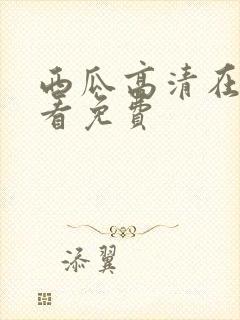 西瓜高清在
看免费
添翼